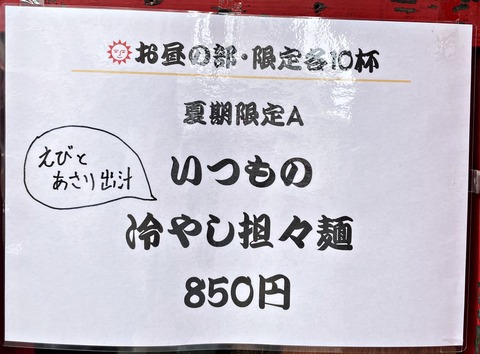 お昼の部・限定各10杯
夏期限定A
えびと
あさり出汁
いつもの
冷やし担々麺
850円